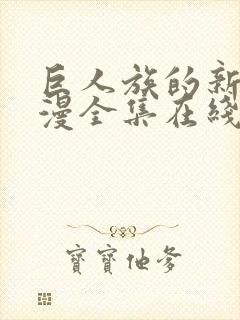 巨人族的新
漫全集在綫
寶寶他爹